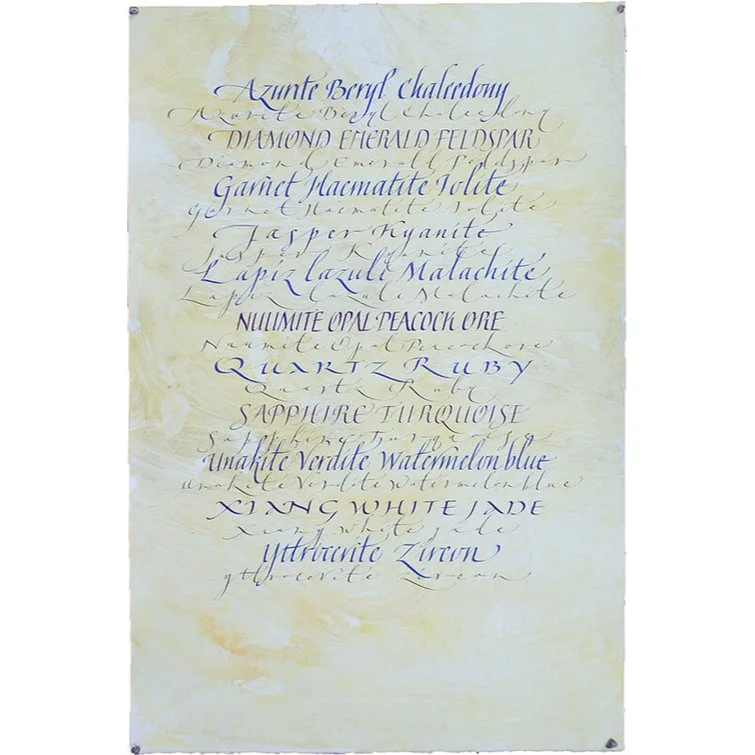 Azurite Beryl Chalcedony
Azurite Beryl Chalcedony
DIAMOND EMERALD FELDSPAR
Diamond Emerald Feldspar
Garnet Haematite Iolite
Garnet Haematite Iolite
Jasper Kyanite
Jasper Kyanite
Lapiz lazuli Malachite
Lapiz lazuli Malachite
NUUMITE OPAL PEACOCK ORE
Nuumite Opal Peacock ore
QUARTZ RUBY
Quartz Ruby
SAPPHIRE TURQUOISE
Sapphire turquoise
Unakite Verdite Watermelon blue
unakite Verdite Watermelon blue
XIANG WHITE JADE
Xiang White jade
Yttrocerite Zircon
yttrocerite Zircon